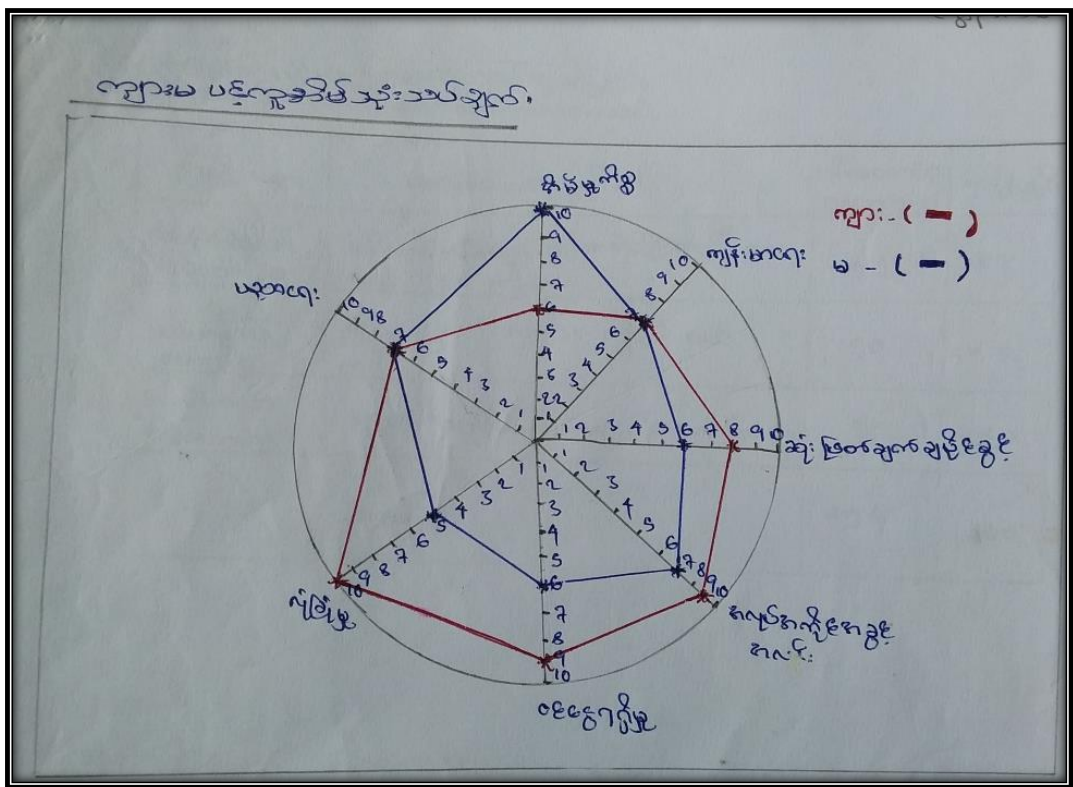 ကျားမ ပန်ကူအိမ်သုံးသပ်ချက်.
အိမ်မှုကိစ္စ
ကျား - ( )
ကျန်းမာရေး
မ - ( )
ပညာရေး
ဆုံးဖြတ်ချက်ချပိုင်ခွင့်
လုံခြုံမှု
အလုပ်အကိုင်အခွင့်
အလမ်း
ဝင်ငွေရရှိမှု
1 2 2 6 4 5 6 7 8 9 10
3 4 5 6 7 8 9 10
1 2 3 4 5 6 7 8 9 10
1 2 3 4 5 6 7 8 9 10
1 2 3 4 5 6 7 8 9 10
1 2 3 4 5 6 7 8 9 10
1 2 3 4 5 6 7 8 9 10